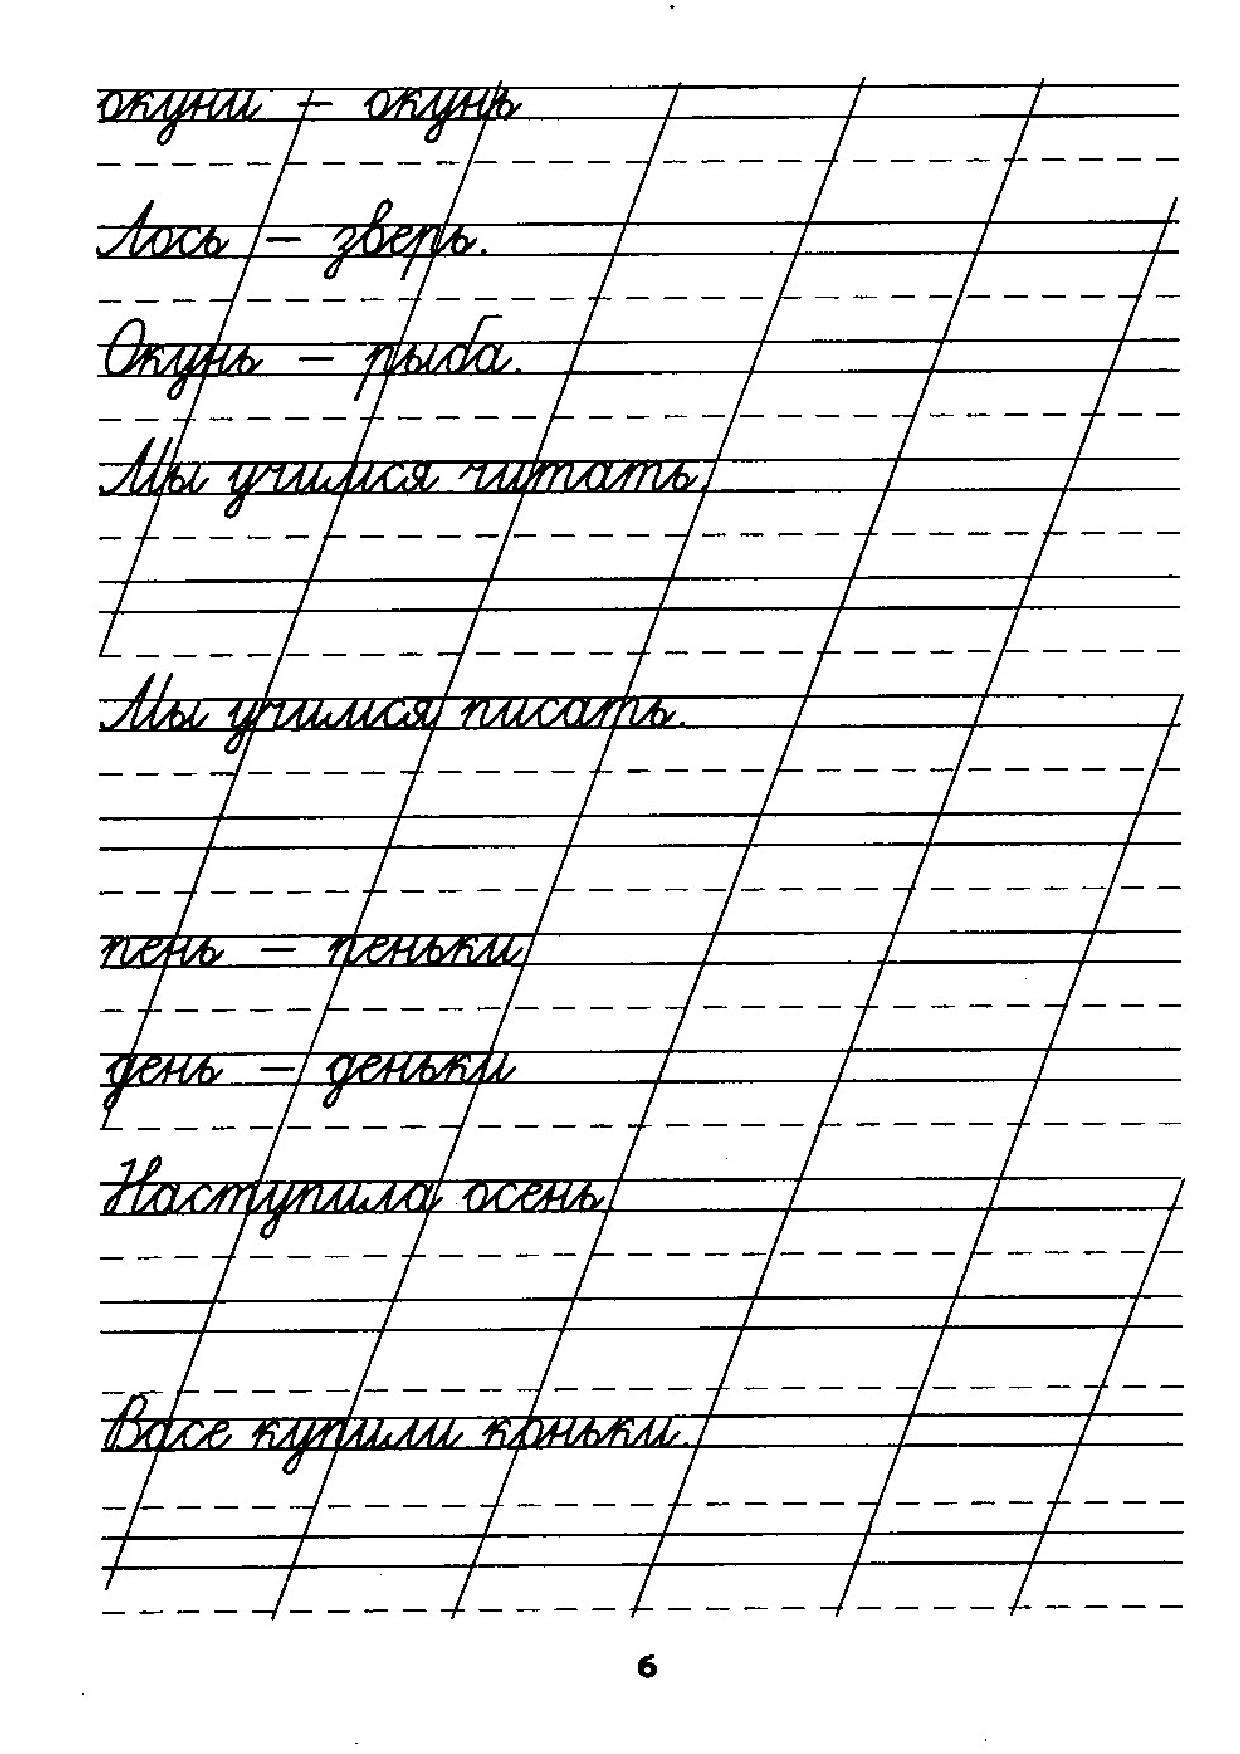 окуни – окунь
Лось – зверь.
Окунь – рыба.
Мы учимся читать.
Мы учимся писать.
пень – пеньки
день – деньки
Наступила осень.
Васе купили коньки.
6